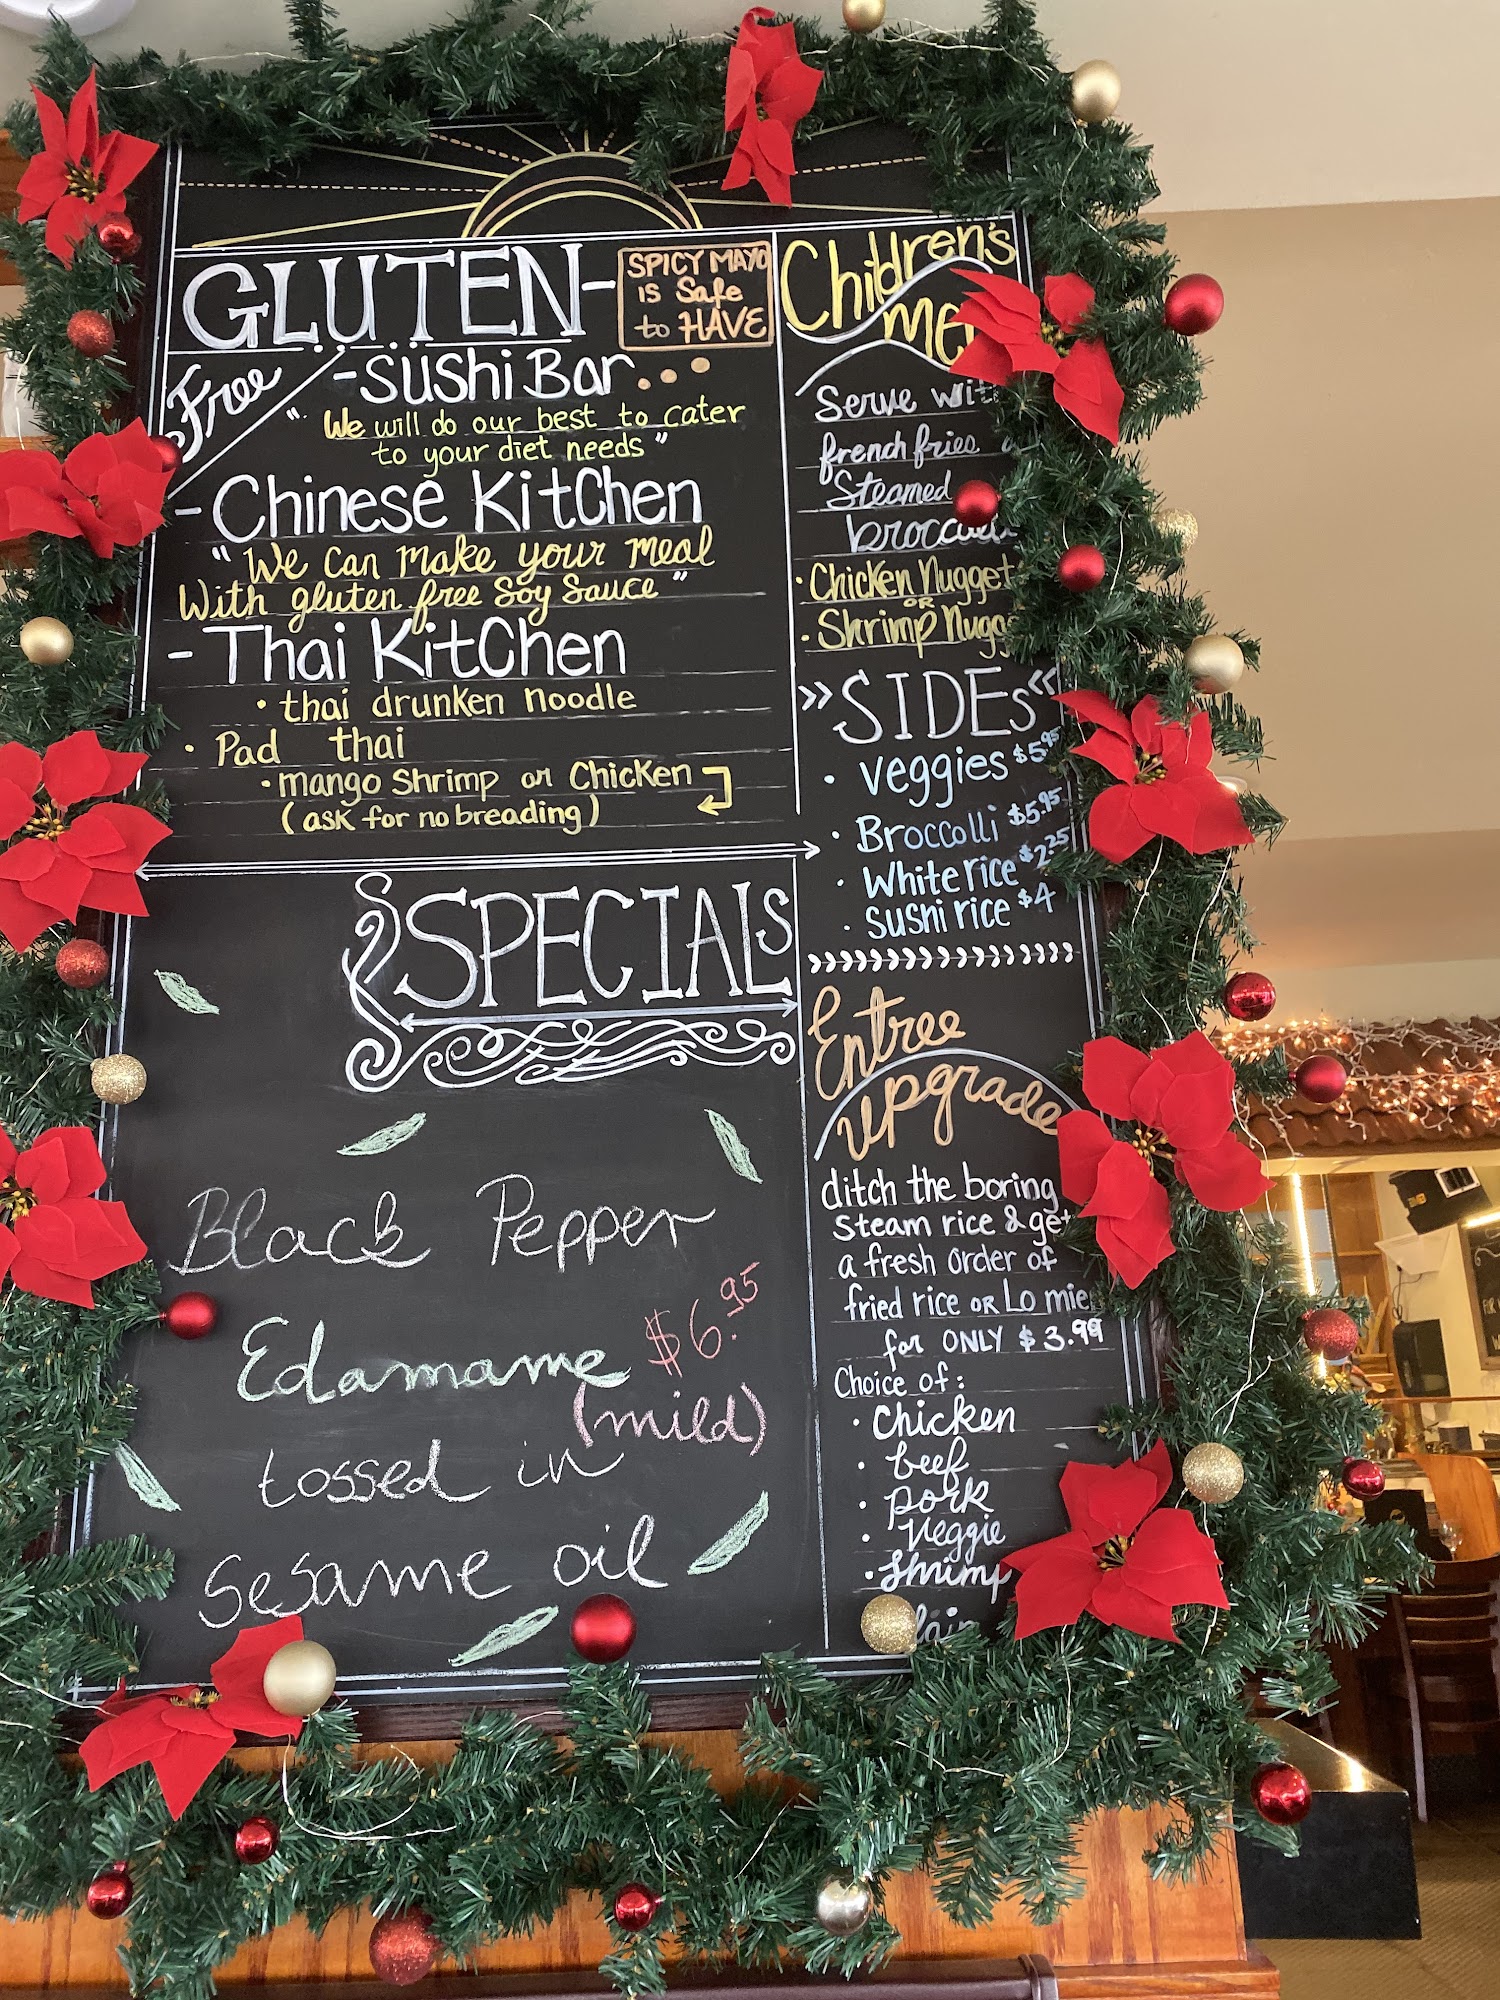 GLUTEN-
Free
SPICY MAYO
is Safe
to HAVE
-Sushi Bar...
" We will do our best to cater
to your diet needs "
- Chinese Kitchen
" We Can Make your meal
With gluten free Soy Sauce "
- Thai Kitchen
• thai drunken noodle
• Pad thai
• mango Shrimp or Chicken
(ask for no breading)
SPECIALS
Black Pepper
Edamame $6.95
(mild)
tossed in
Sesame oil
Children's
Serve
french fries
Steamed
• Chicken
OR
• Shrimp
>> SIDEs <<
• Veggies $5.95
• Broccolli $5.95
• White rice $2.25
• Sushi rice $4
Entree
upgrade
ditch the boring
Steam rice & get
a fresh order of
fried rice OR Lo
for ONLY $3.99
Choice of:
• Chicken
• beef
• pork
• Veggie